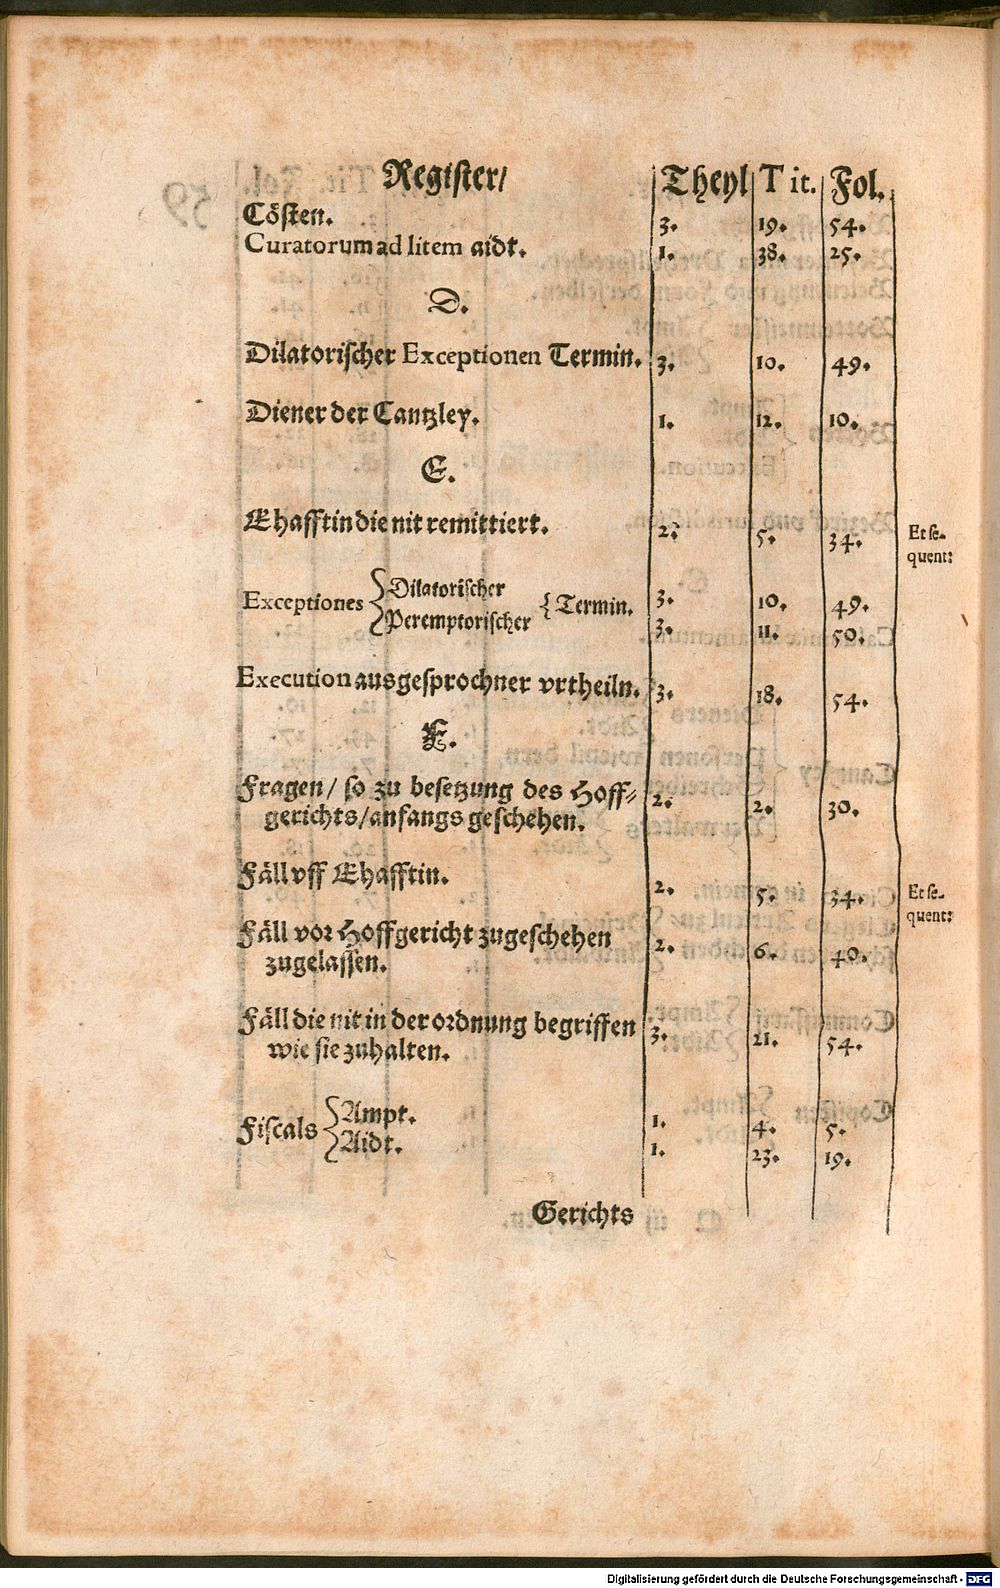 Register/ Theyl Tit. Fol.
Cösten. 3. 19. 54.
Curatorum ad litem aidt. 1. 38. 25.
D.
Dilatorischer Exceptionen Termin. 3. 10. 49.
Diener der Cantzley. 1. 12. 10.
E.
Ehafftin die nit remittiert. 2. 5. 34. Et se-
quent:
Dilatorischer 3. 10. 49.
Exceptiones { { Termin.
Peremptorischer 3. 11. 50.
Execution ausgesprochner vrtheiln. 3. 18. 54.
F.
Fragen/ so zu besetzung des Hoff-
gerichts/anfangs geschehen. 2. 2. 30.
Fäll vff Ehafftin. 2. 5. 34. Et se-
quent:
Fäll vor Hoffgericht zugeschehen
zugelassen. 2. 6. 40.
Fäll die nit in der ordnung begriffen
wie sie zuhalten. 3. 21. 54.
Fiscals { Ampt. 1. 4. 5.
Aidt. 1. 23. 19.
Gerichts
Digitalisierung gefördert durch die Deutsche Forschungsgemeinschaft - DFG